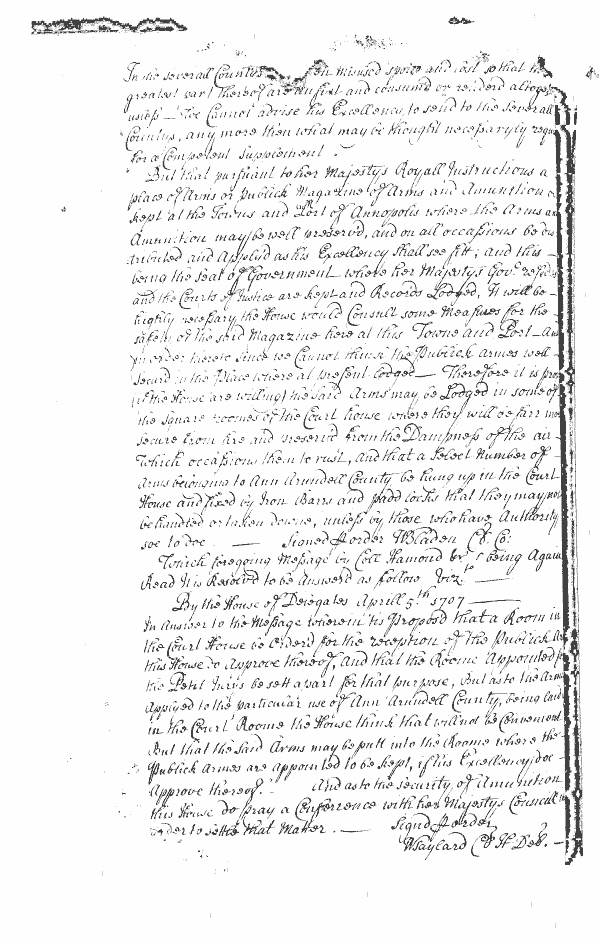 In the several Countys on misused spoiled and lost so that the
greatest part thereof are unfixt and consumed or renderd altoge
useless — We Cannot advise his Excellency to send to the severall
Countys, any more then what may be thought necessaryly requ
for a Competent Supplement.
But that pursuant to her Majestys Royall Instructions a
place of Arms or Publick Magazine of Arms and Amunition
kept at the Towne and Port of Annopolis where the Arms an
Amunition may be well preserved, and on all occasions be dis
tributed and Applyd as his Excellency shall see fitt; and this —
being the seat of Government where her Majestys Govr. resides
and the Courts of Justice are kept and Records Lodged, It will be —
highly necessary the House would Consult some Measures for the
safety of the said Magazine here at this Towne and Port — And
in order thereto since we Cannot think the Publick Armes well —
Secured in the Place where at present Lodged — Therefore it is prop
if the House are willing the said Arms may be Lodged in some of
the square roomes of the Court house where they will be farr mo
secure from fire and preserved from the Dampness of the air —
Which occassions them to rust, And that a select Number of
Arms belonging to Ann Arundell County be hung up in the Court
House and fixed by Iron Barrs and padd locks that they may not
be handled or taken downe, unless by those who have Authority
soe to doe — Signed p order W Bladen Cl. C:
Which foregoing Message by Coll Hamond being Again
Read It is Resolved to be Answerd as follow Vizt. —
By the House of Delegates Aprill 5th 1707 —
In Answer to the Message wherein tis Propos'd that a Room in
the Court House be orderd for the reception of the Publick Ar
this House do Approve thereof, And that the Roome Appointed f
the Petit Jurys be sett apart for that purpose, But as to the Arms
Applyed to the particular use of Ann Arundell County, being lodg
in the Court Roome the House think that will not be Convenient
But that the said Arms may be putt into the Roome where the
Publick Armes are appointed to be kept, if his Excellency doe —
Approve thereof. And as to the security of Amunition
this House do pray a Conferrence with her Majestys Councill in
order to settle that Matter. — Signd p order
W Taylard Cl H Del. —